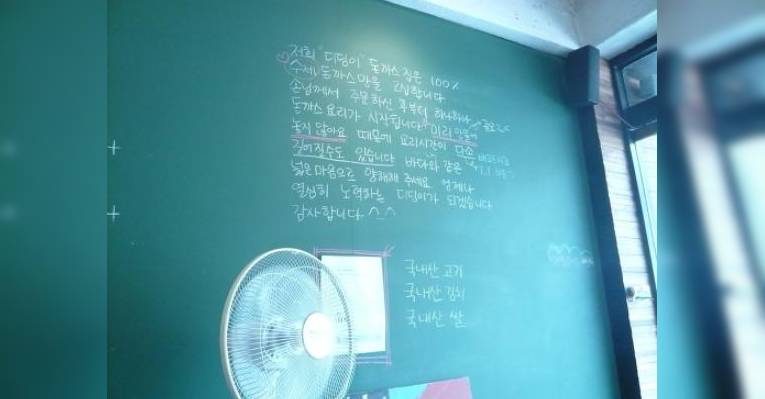 저희 "디딤이" 돈까스 집은 100%
수제 돈까스만을 고집합니다
손님께서 주문하신 후부터 하나하나
돈까스 요리가 시작됩니다 미리 만들어
놓지 않아요 때문에 요리시간이 다소
길어질수도 있습니다 바다와 같은
넓은 마음으로 양해해 주세요 언제나
열심히 노력하는 디딤이가 되겠습니다
감사합니다 ^_^
국내산 고기
국내산 김치
국내산 쌀